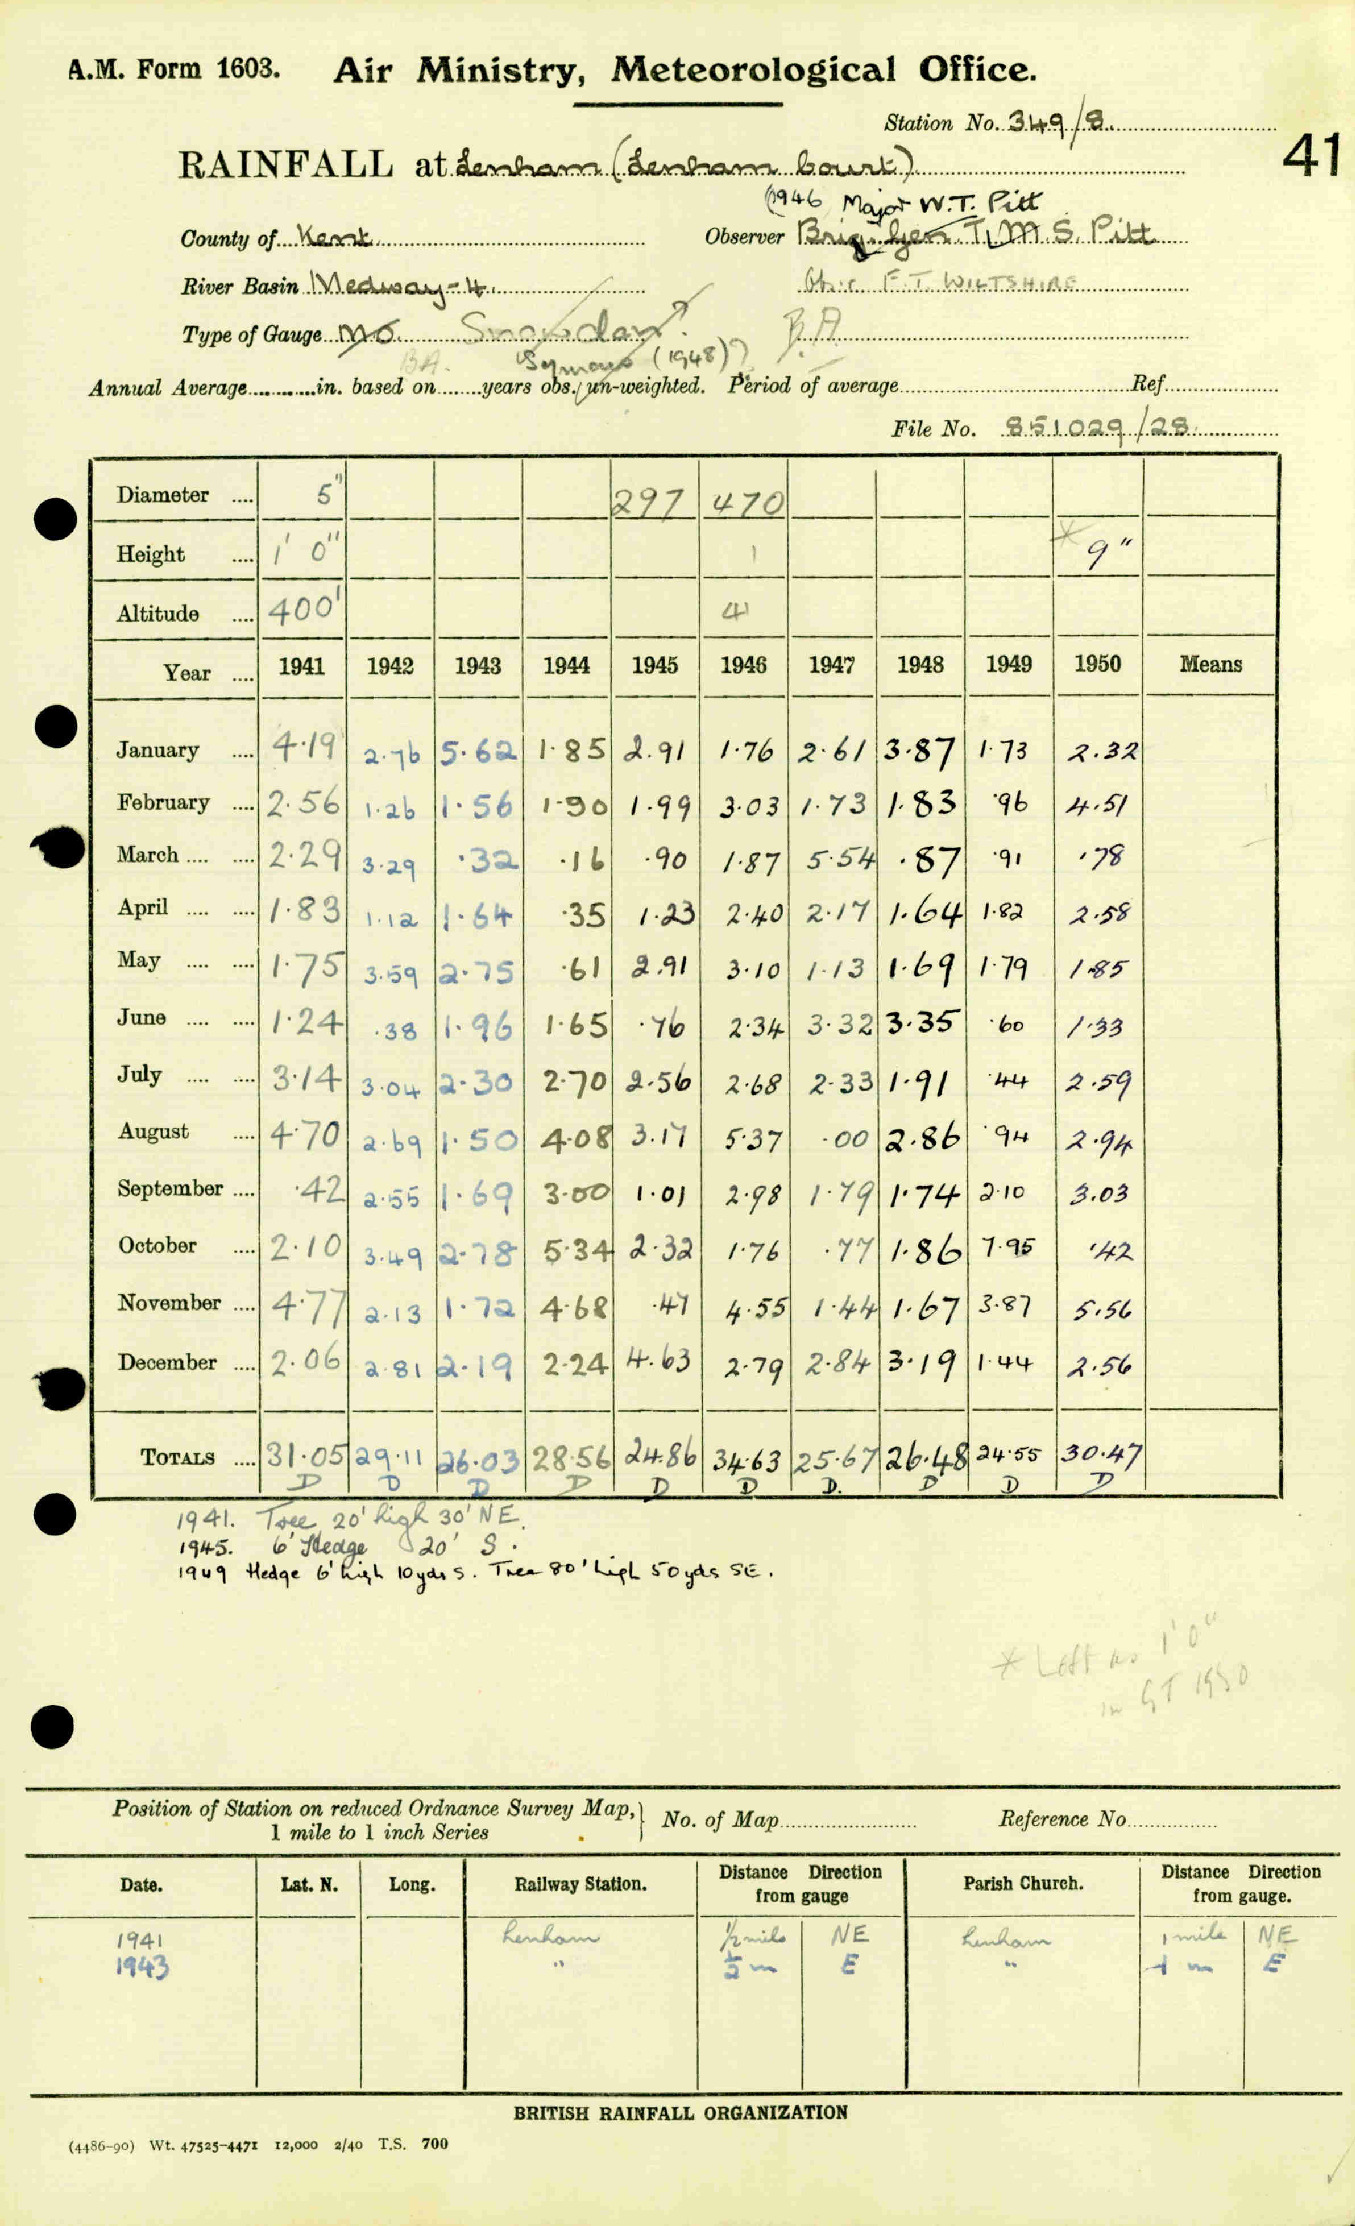 A.M. Form 1603. Air Ministry, Meteorological Office.
Station No. 349/8.
41
RAINFALL at Lenham (Lenham Court)
(1946 Major W.T. Pitt
County of Kent Observer Brig. Gen. T. M. S. Pitt
River Basin Medway-4. Obsr. F.T. WILTSHIRE
Type of Gauge MO Snowdon B.A
BA. Symons (1948)?
Annual Average in. based on years obs./un-weighted. Period of average Ref.
File No. 851029/28
Diameter 5" 297 470
Height 1' 0" 1 * 9"
Altitude 400' 41
Year 1941 1942 1943 1944 1945 1946 1947 1948 1949 1950 Means
January 4.19 2.76 5.62 1.85 2.91 1.76 2.61 3.87 1.73 2.32
February 2.56 1.26 1.56 1.90 1.99 3.03 1.73 1.83 .96 4.51
March 2.29 3.29 .32 .16 .90 1.87 5.54 .87 .91 .78
April 1.83 1.12 1.64 .35 1.23 2.40 2.17 1.64 1.82 2.58
May 1.75 3.59 2.75 .61 2.91 3.10 1.13 1.69 1.79 1.85
June 1.24 .38 1.96 1.65 .76 2.34 3.32 3.35 .60 1.33
July 3.14 3.04 2.30 2.70 2.56 2.68 2.33 1.91 .44 2.59
August 4.70 2.69 1.50 4.08 3.17 5.37 .00 2.86 .94 2.94
September .42 2.55 1.69 3.00 1.01 2.98 1.79 1.74 2.10 3.03
October 2.10 3.49 2.78 5.34 2.32 1.76 .77 1.86 7.95 .42
November 4.77 2.13 1.72 4.68 .47 4.55 1.44 1.67 3.87 5.56
December 2.06 2.81 2.19 2.24 4.63 2.79 2.84 3.19 1.44 2.56
TOTALS 31.05 29.11 26.03 28.56 24.86 34.63 25.67 26.48 24.55 30.47
D D D D D D D. D D D
1941. Tree 20' high 30' NE.
1945. 6' Hedge 20' S.
1949 Hedge 6' high 10yds S. Tree 80' high 50yds SE.
* Left as 1' 0"
in GT 1950
Position of Station on reduced Ordnance Survey Map,
1 mile to 1 inch Series
No. of Map Reference No.
Date. Lat. N. Long. Railway Station. Distance Direction from gauge Parish Church. Distance Direction from gauge.
1941 Lenham 1/2 mile NE Lenham 1 mile NE
1943 " 1/2 m E " 1 m E
BRITISH RAINFALL ORGANIZATION
(4486-90) Wt. 47525-4471 12,000 2/40 T.S. 700